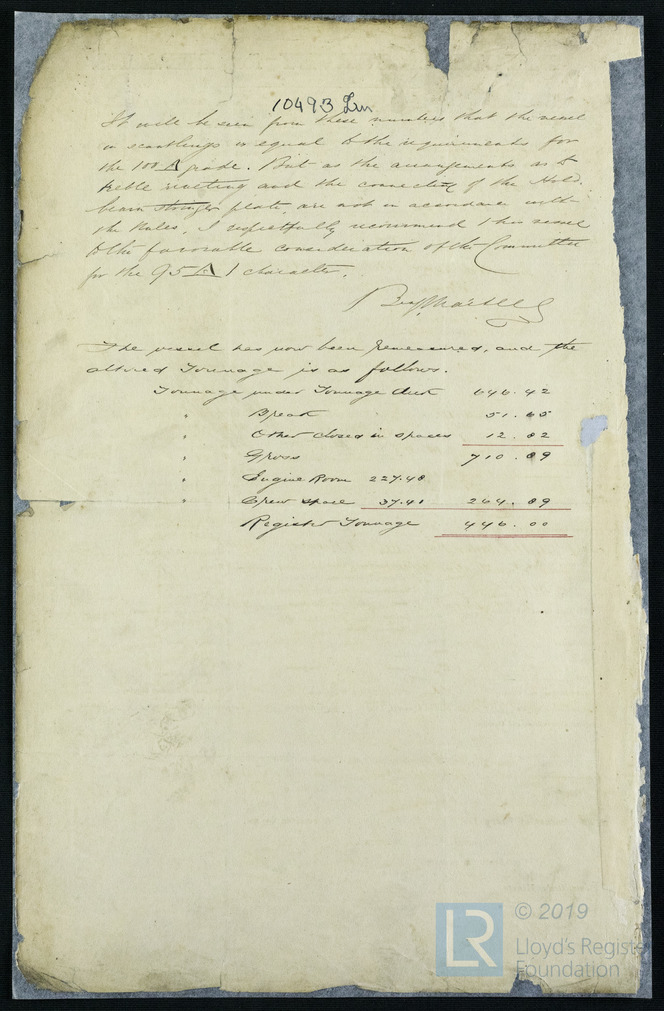 10493 Lon
It will be seen from these numbers that the vessel
in scantlings is equal to the requirements for
the 100 A grade. But as the arrangements as to
keble riveting and the connecting of the Hold
beam stringer plate, are not in accordance with
the Rules, I respectfully recommend this vessel
to the favorable consideration of the Committee
for the 95 A 1 character.
The vessel has now been remeasured, and the
altered Tonnage is as follows.
Tonnage under Tonnage deck 646.42
" Break 51.65
" Other closed in spaces 12.82
" Gross 710.89
" Engine Room 227.48
" Crew space 37.41 264.89
Register Tonnage 446.00
LR
© 2019
Lloyd's Registe
Foundation